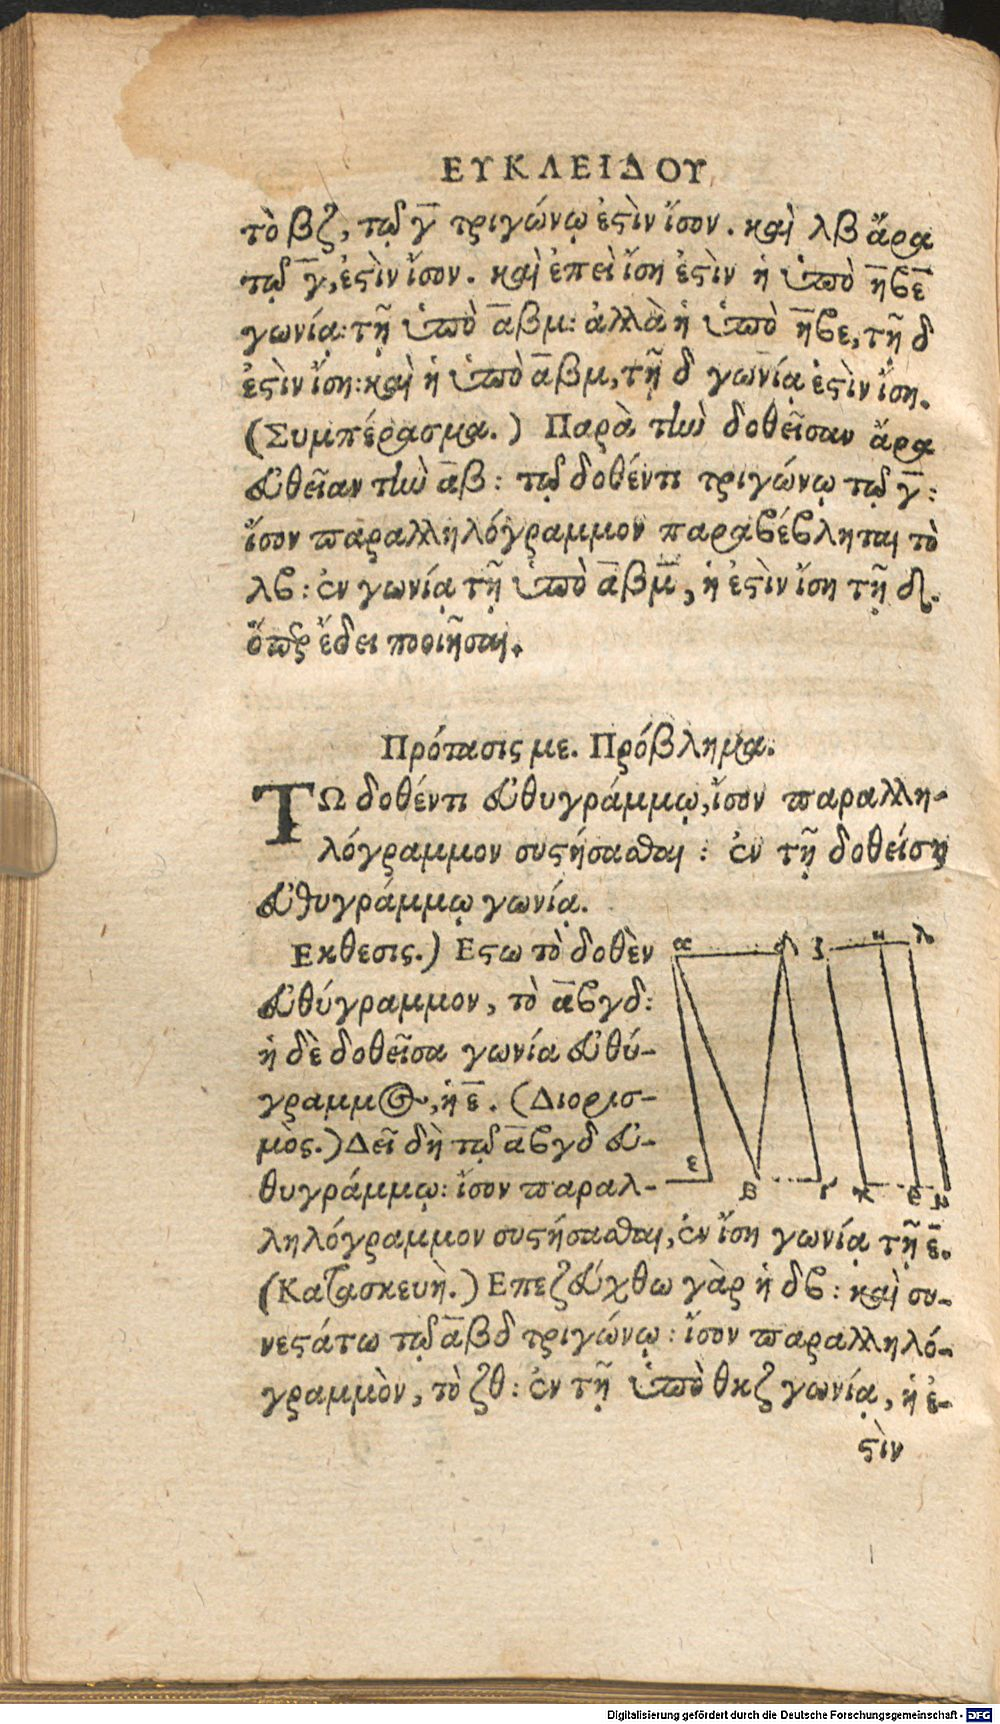 ΕΥΚΛΕΙΔΟΥ
τὸ βζ, τῷ γ̅ τριγώνῳ ἐϛὶν ἴσον. καὶ λβ ἄρα
τῷ γ̅, ἐϛὶν ἴσον. καὶ ἐπεὶ ἴση ἐϛὶν ἡ ὑπὸ η̅βε̅
γωνία: τῇ ὑπὸ α̅βμ: ἀλλὰ ἡ ὑπὸ η̅βε, τῇ δ
ἐϛὶν ἴση: καὶ ἡ ὑπὸ α̅βμ, τῇ δ γωνίᾳ ἐϛὶν ἴση.
(Συμπέρασμα.) Παρὰ τὴν δοθεῖσαν ἄρα
εὐθεῖαν τὴν α̅β: τῷ δοθέντι τριγώνῳ τῷ γ̅:
ἴσον παραλληλόγραμμον παραβέβληται τὸ
λβ: ἐν γωνίᾳ τῇ ὑπὸ α̅βμ̅, ἥ ἐϛὶν ἴση τῇ δ.
ὅπερ ἔδει ποιῆσαι.
Πρότασις με. Πρόβλημα.
ΤΩ δοθέντι εὐθυγράμμῳ, ἴσον παραλλη-
λόγραμμον συϛήσασθαι: ἐν τῇ δοθείσῃ
εὐθυγράμμῳ γωνίᾳ.
Εκθεσις.) Εϛω τὸ δοθὲν
εὐθύγραμμον, τὸ α̅βγδ:
ἡ δὲ δοθεῖσα γωνία εὐθύ-
γραμμος, ἡ ε̅. (Διορισ-
μὸς.) Δεῖ δὴ τῷ α̅βγδ εὐ-
θυγράμμῳ: ἴσον παραλ-
ληλόγραμμον συϛήσασθαι, ἐν ἴσῃ γωνίᾳ τῇ ε̅.
(Κατασκευὴ.) Επεζεύχθω γὰρ ἡ δβ: καὶ συ-
νεϛάτω τῷ α̅βδ τριγώνῳ: ἴσον παραλληλό-
γραμμὸν, τὸ ζθ: ἐν τῇ ὑπὸ θκζ γωνίᾳ, ἥ ἐ-
ϛὶν
α δ ζ η λ
ε β γ κ θ μ
Digitalisierung gefördert durch die Deutsche Forschungsgemeinschaft - DFG